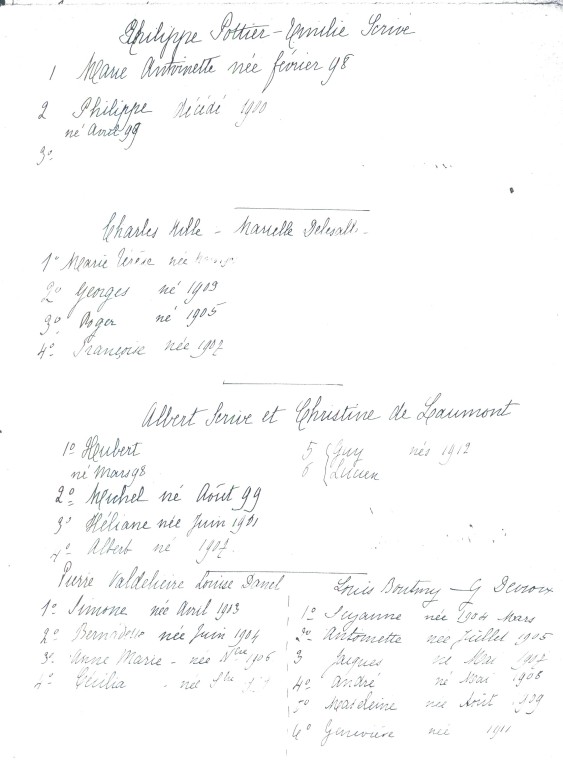 Philippe Pottier - Emilie Scrive
1 Marie Antoinette née février 98
2 Philippe décédé 1900
né Avril 99
3º
Charles Mille - Marielle Delesalle
1º Marie Térèse née
2º Georges né 1903
3º Roger né 1905
4º Françoise née 1907
Albert Scrive et Christine de Laumont
1º Hubert
né Mars 98
2º Michel né Août 99
3º Héliane née Juin 1901
4º Albert né 1907.
5 Guy nés 1912
6 Lucien
Pierre Valdelièvre Louise Danel
1º Simone née Avril 1903
2º née Juin 1904
3º Anne Marie - née Nbre 1906
4º Cécilia - née
Louis Boutmy - G Devroix
1º Suzanne née 1904 Mars
2º Antoinette née Juillet 1905
3 Jacques né Mai 1907
4º André né Mai 1908
5º Madeleine née Août 1909
6º Geneviève née 1911